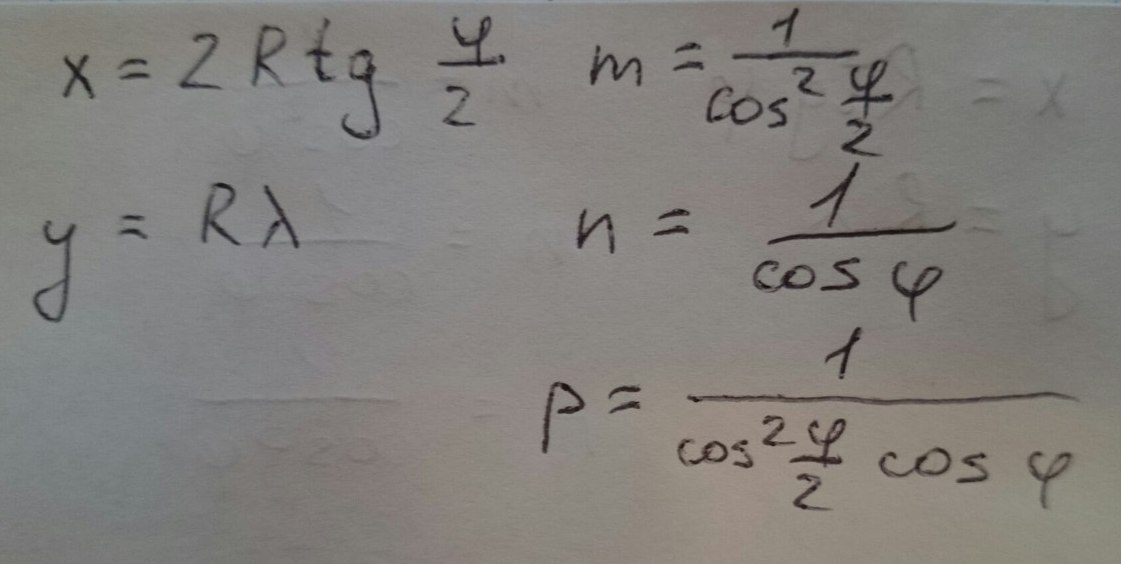 x = 2 R tg φ/2 m = 1/cos² φ/2
y = Rλ n = 1/cos φ
p = 1/cos² φ/2 cos φ